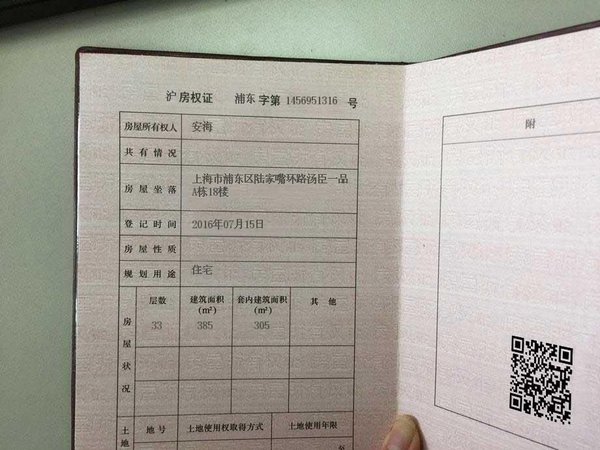 沪 房权证 浦东 字第 1456951316 号
附
房屋所有权人 安海
共有情况
房屋坐落 上海市浦东区陆家嘴环路汤臣一品
A栋18楼
登记时间 2016年07月15日
房屋性质
规划用途 住宅
房屋状况
层数 建筑面积 套内建筑面积 其他
(m²) (m²)
33 385 305
土地
地号 土地使用权取得方式 土地使用年限
至